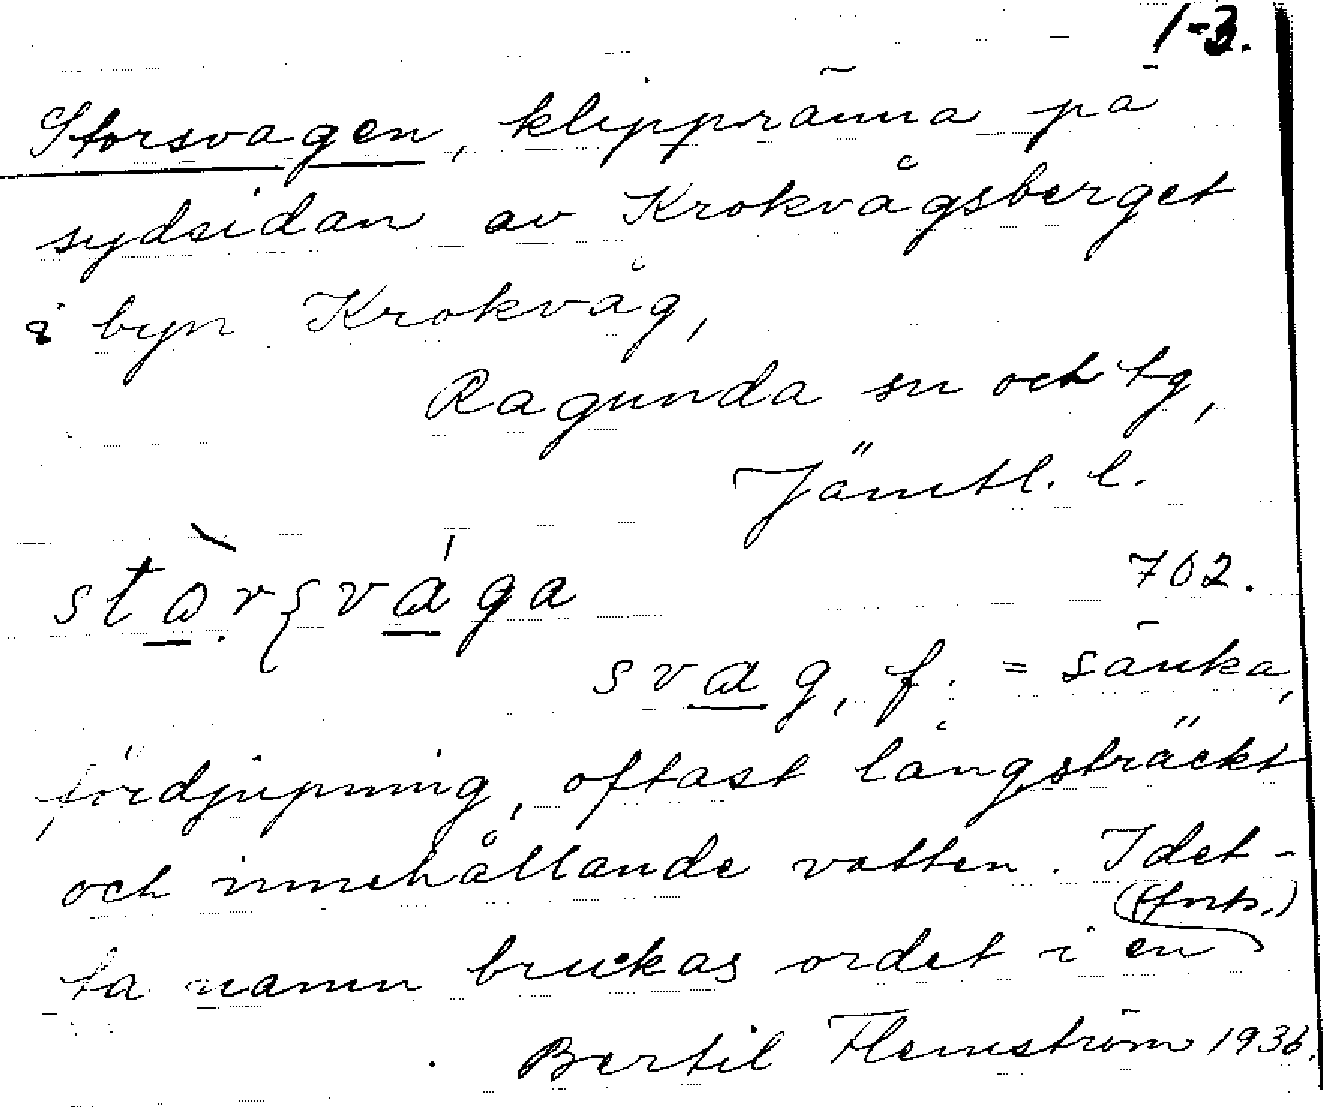 1-3.
Storsvagen, klippränna på
sydsidan av Krokvågsberget
i byn Krokvåg,
Ragunda sn och tg,
Jämtl. l.
702.
svag, f. = sänka,
fördjupning, oftast långsträckt
och innehållande vatten. I det-
(forts.)
ta namn bruckas ordet i en
Bertil Flemström 1936.